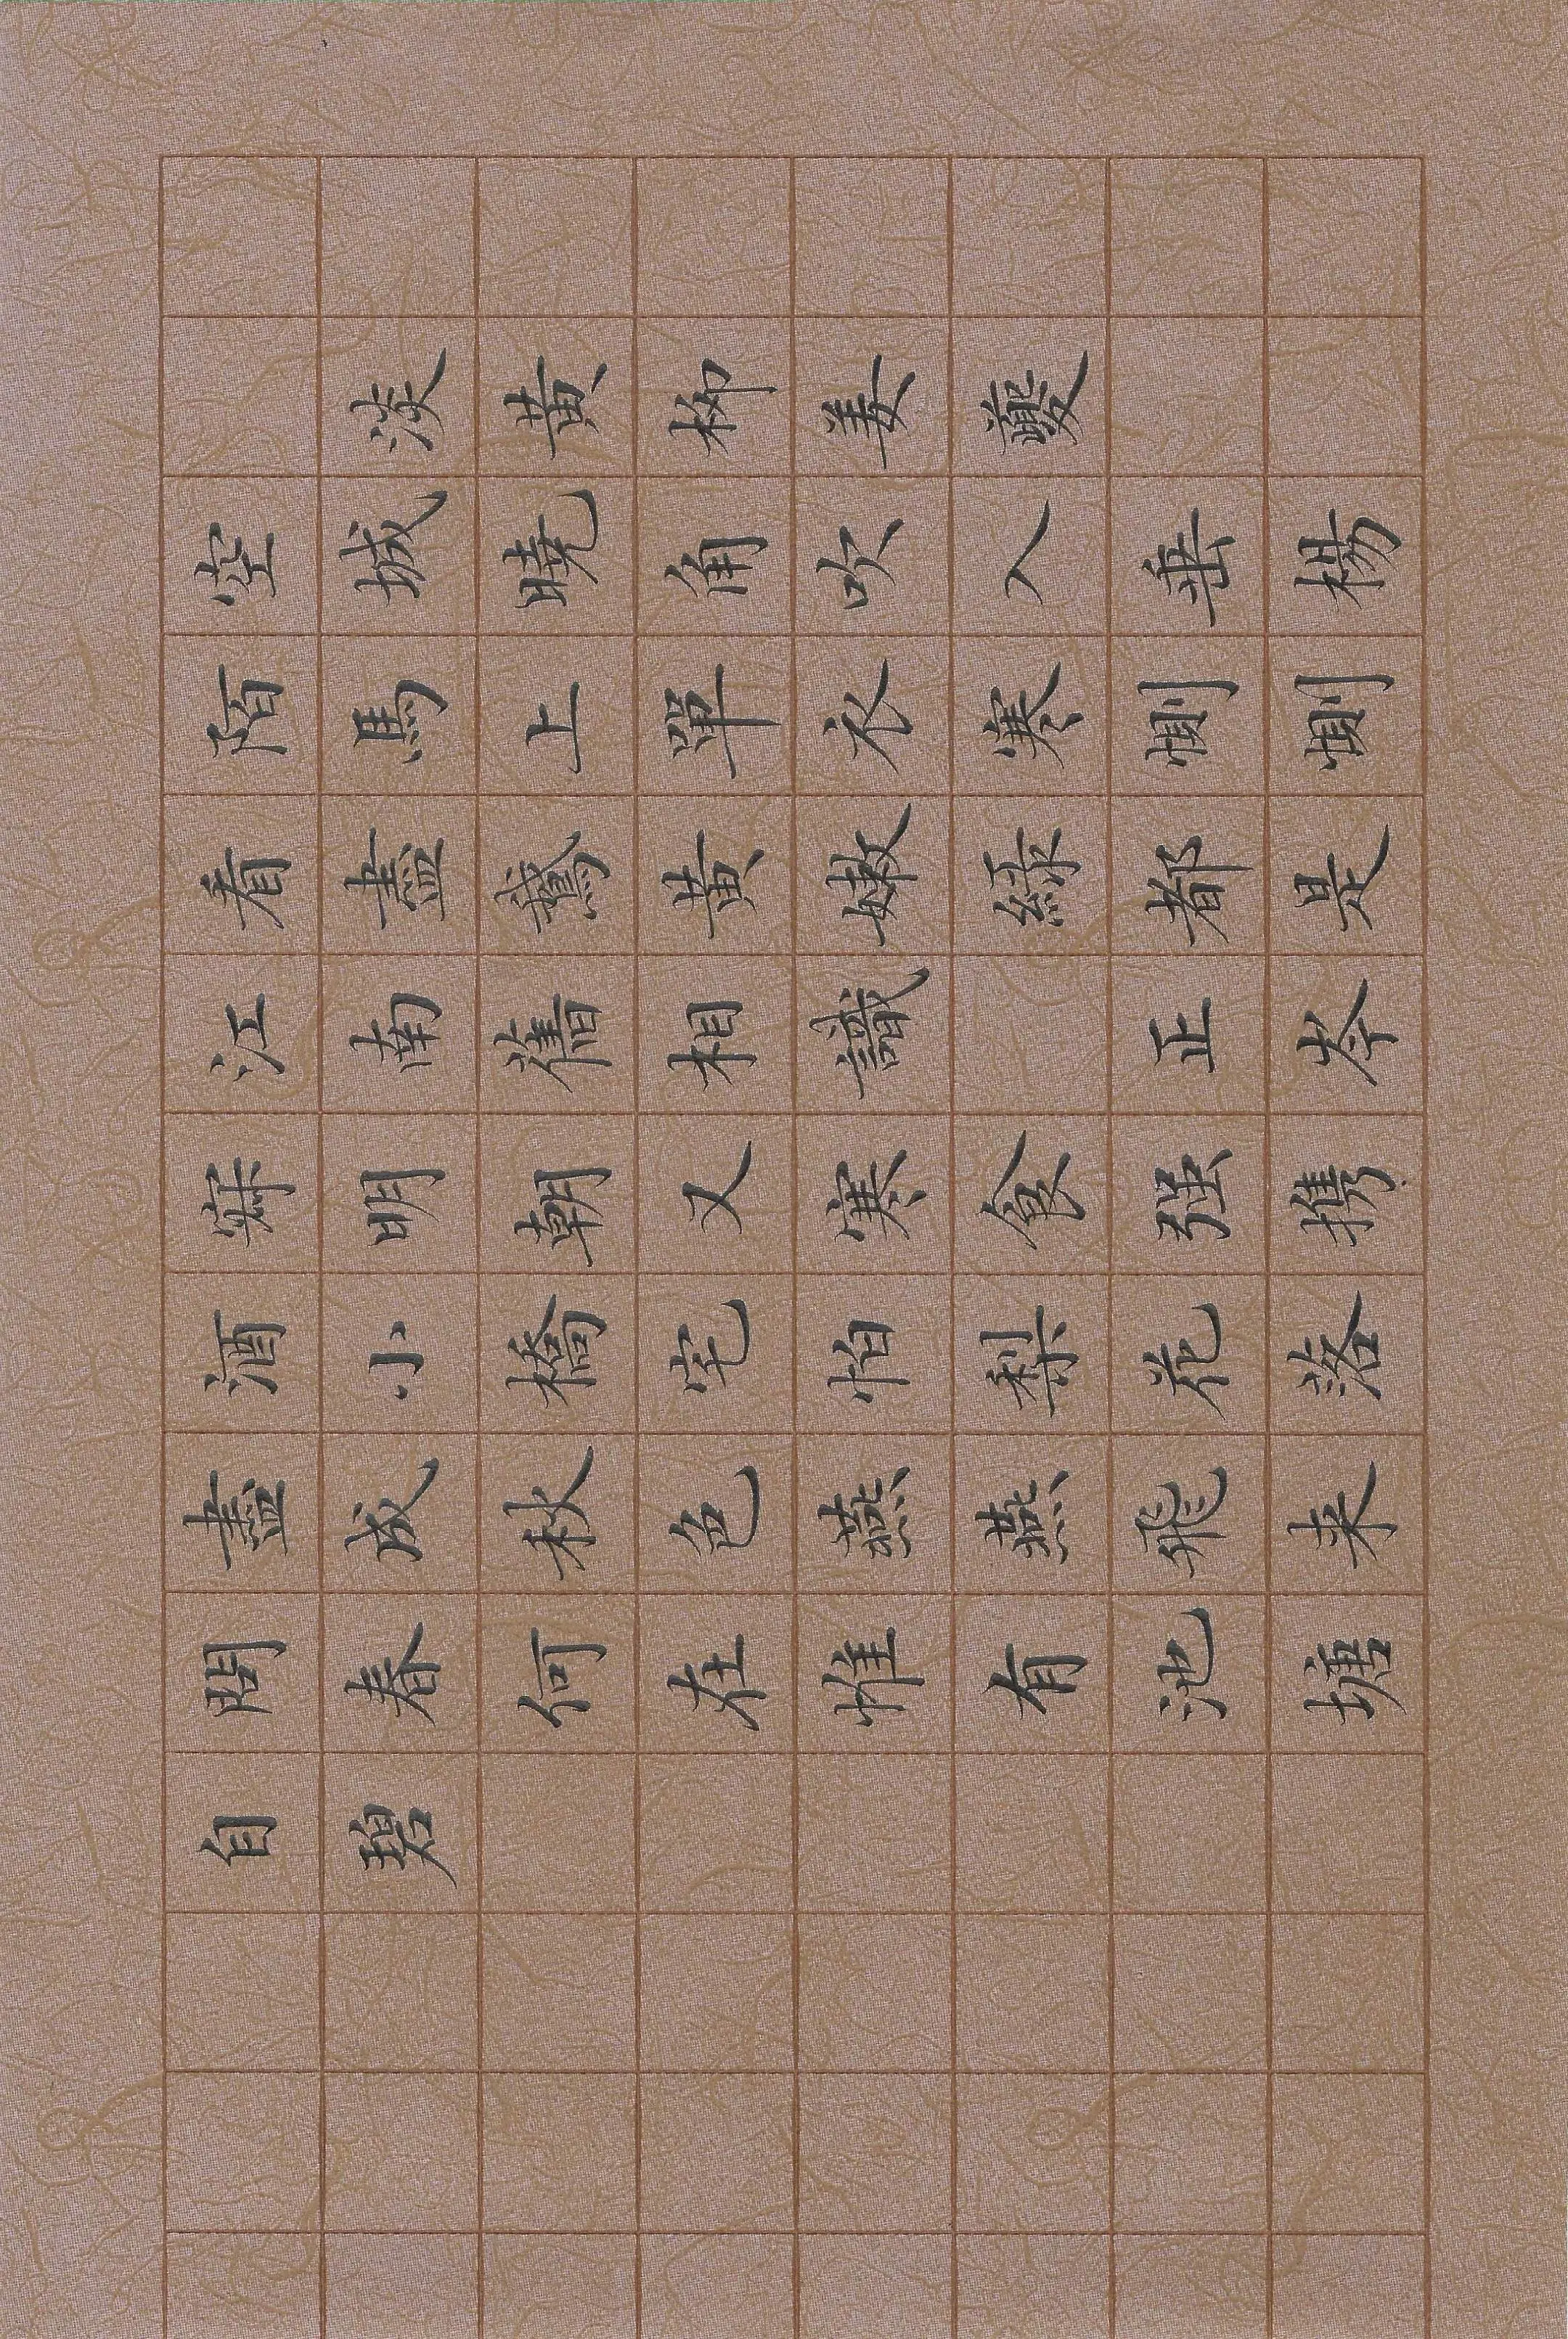 淡黃柳姜夔
空城曉角吹入垂楊
陌馬上單衣寒惻惻
看盡鵞黃嫩綠都是
江南舊相識 正岑
寂明朝又寒食强携
酒小橋宅怕梨花落
盡成秋色燕燕飛来
問春何在惟有池塘
自碧